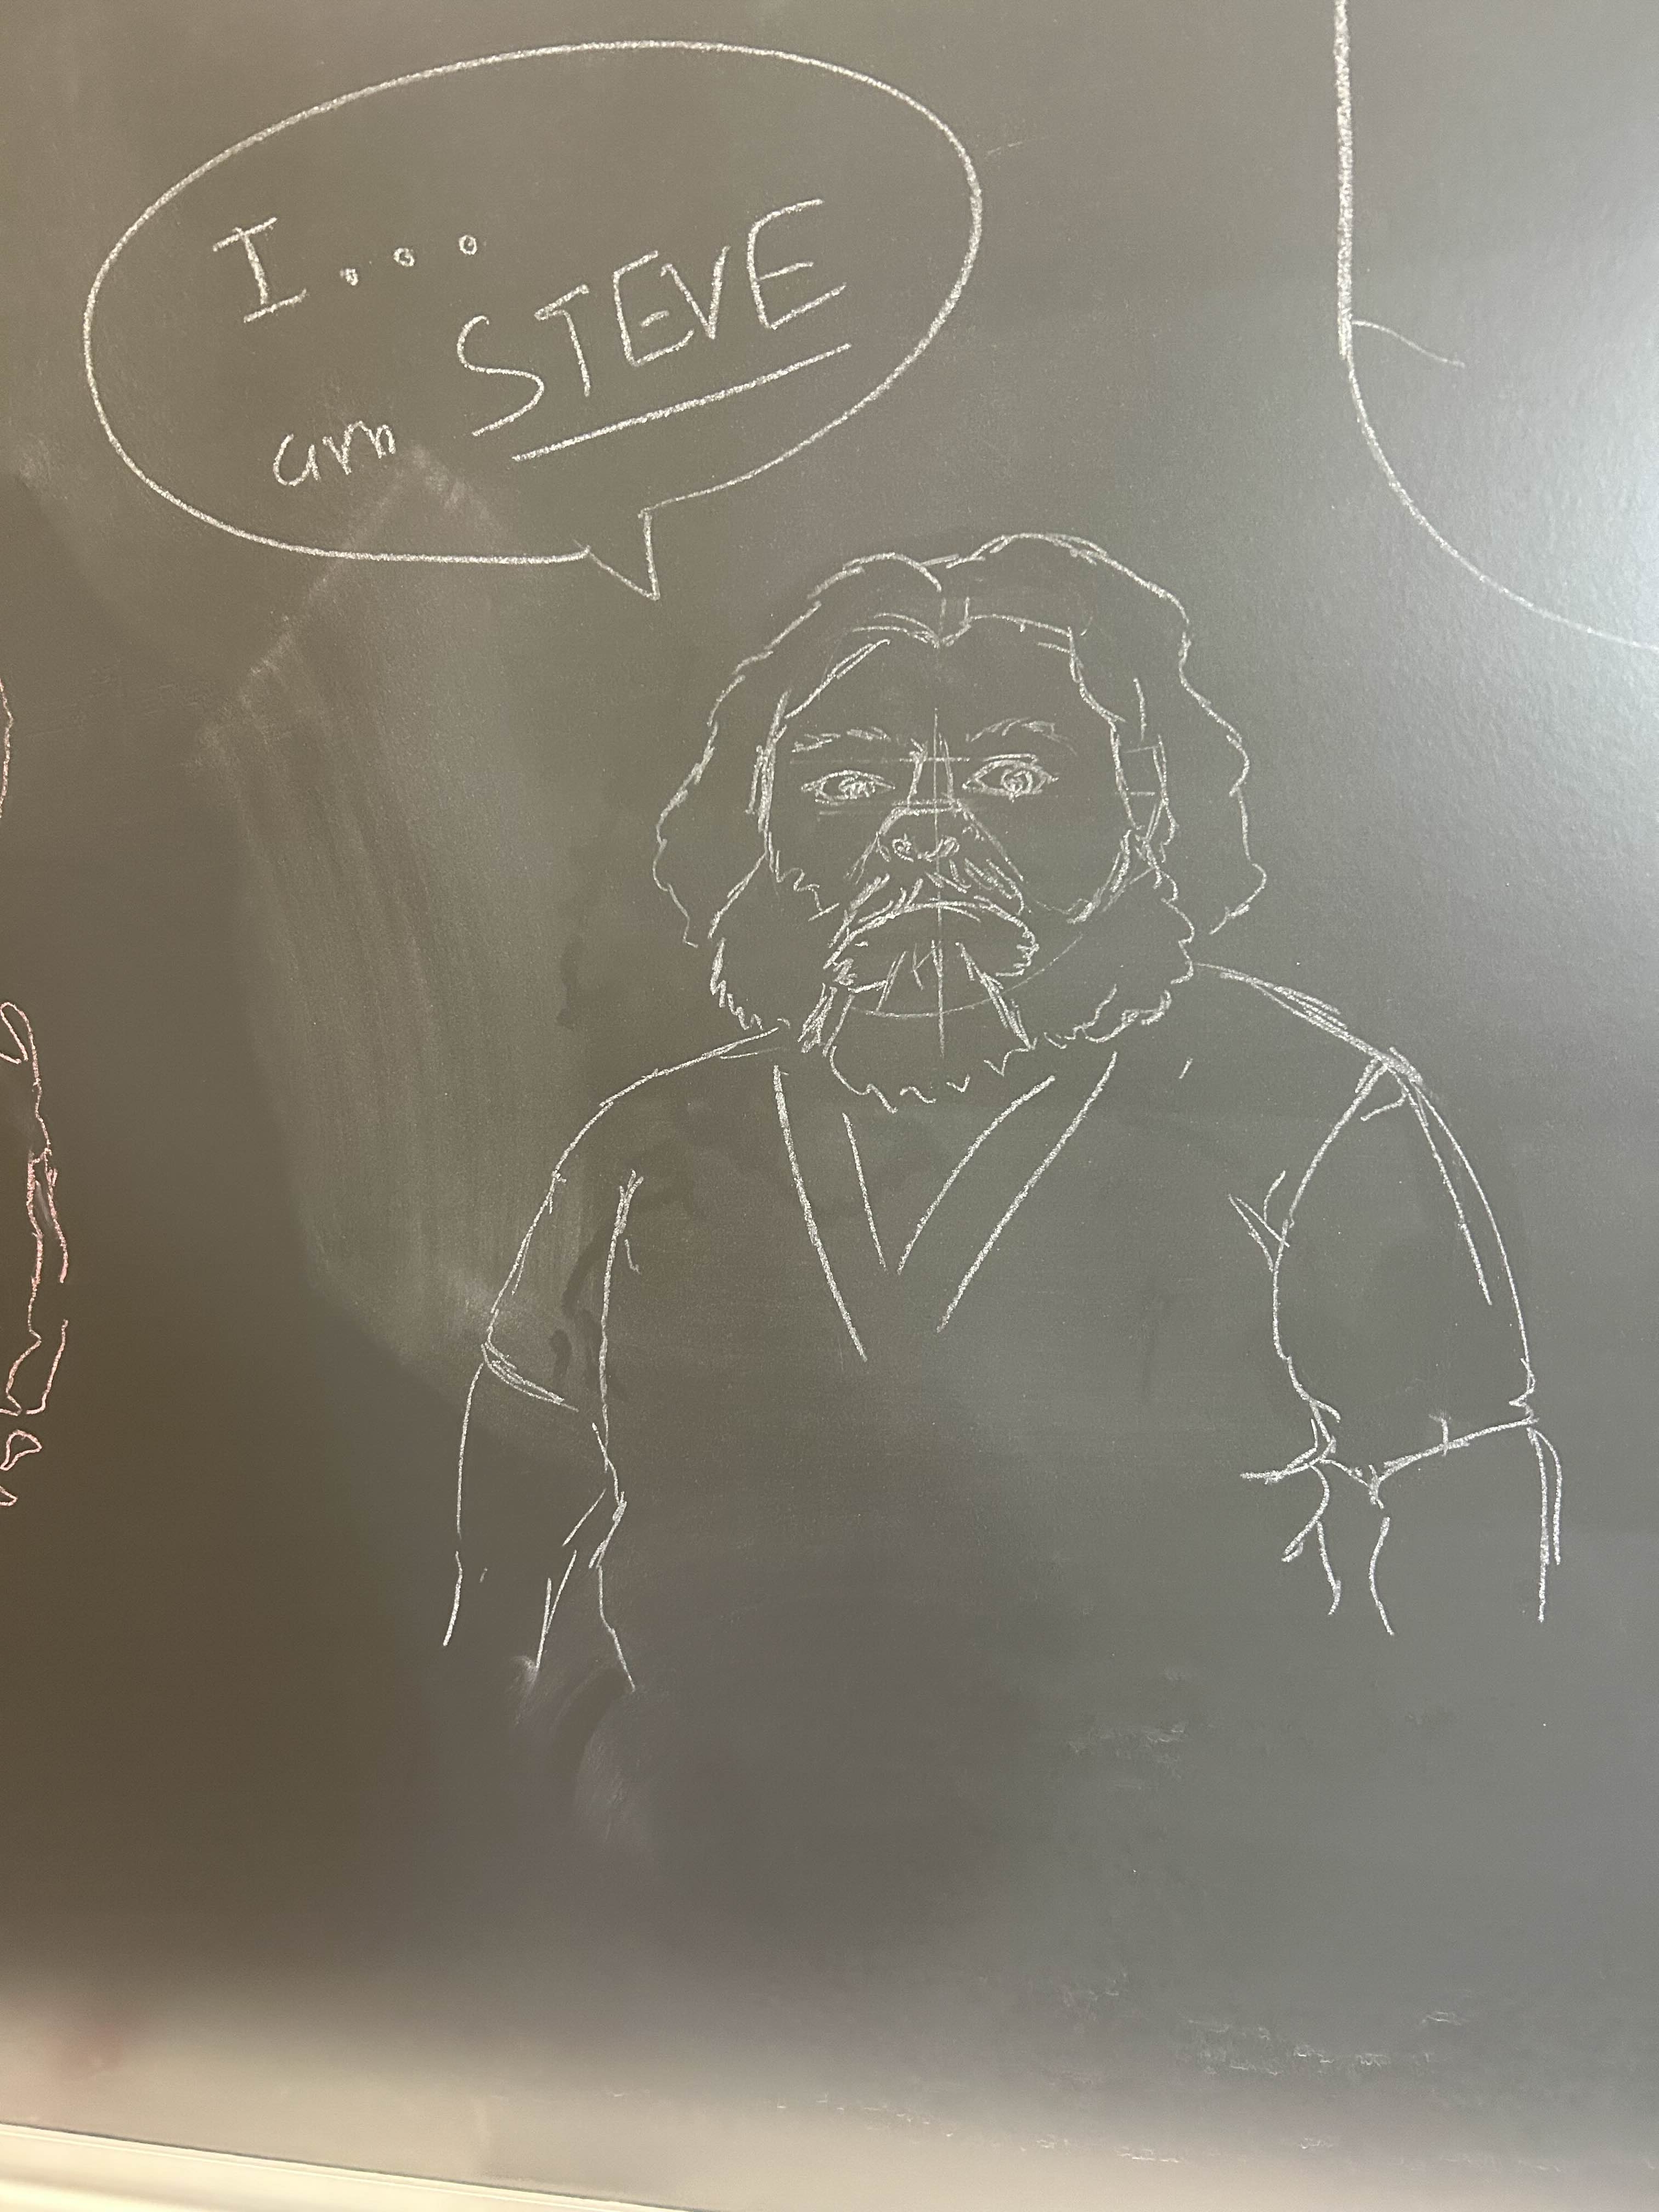 I...
am STEVE